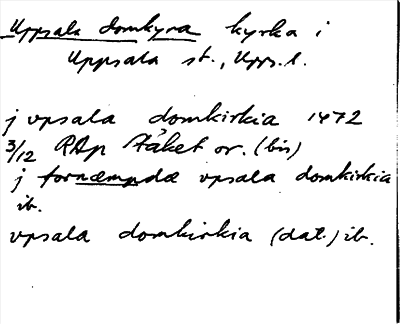 Uppsala domkyra kyrka i
Uppsala st., Upps. l.
j vpsala domkirkia 1472
3/12 RAp Stäket or. (bis)
j fornæmpdæ vpsala domkirkia
ib.
vpsala domkirkia (dat.) ib.